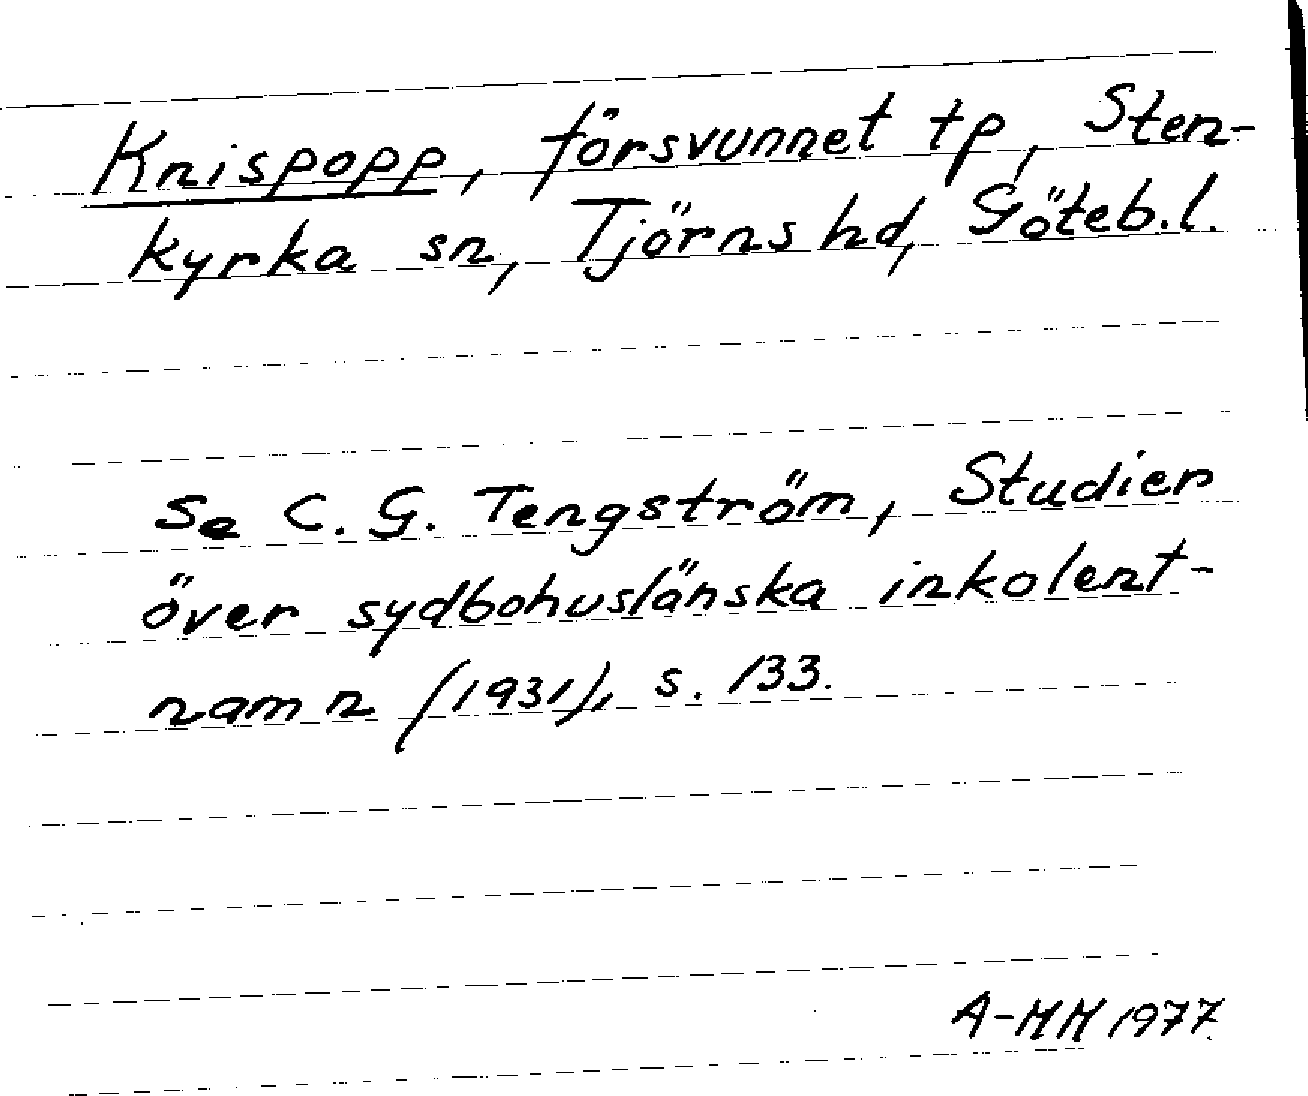 Knispopp, försvunnet tp, Sten-
kyrka sn, Tjörns hd, Göteb.l.
Se C. G. Tengström, Studier
över sydbohuslänska inkolent-
namn (1931), s. 133.
A-MM 1977.